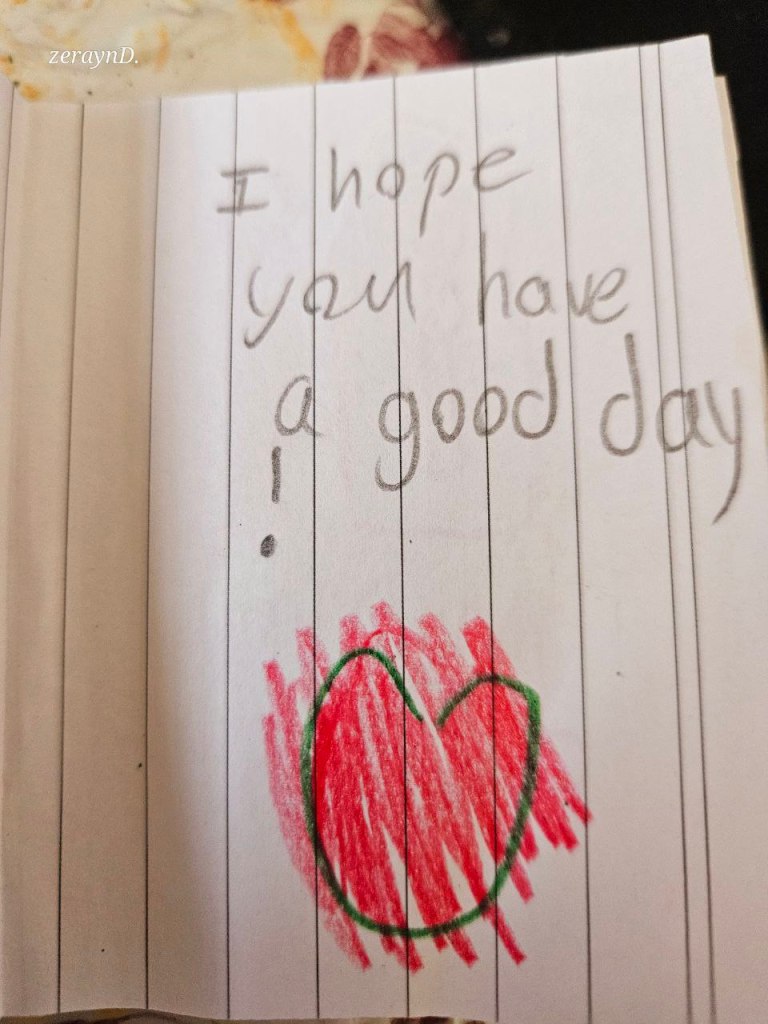 zeraynD.
I hope
you have
a good day
!